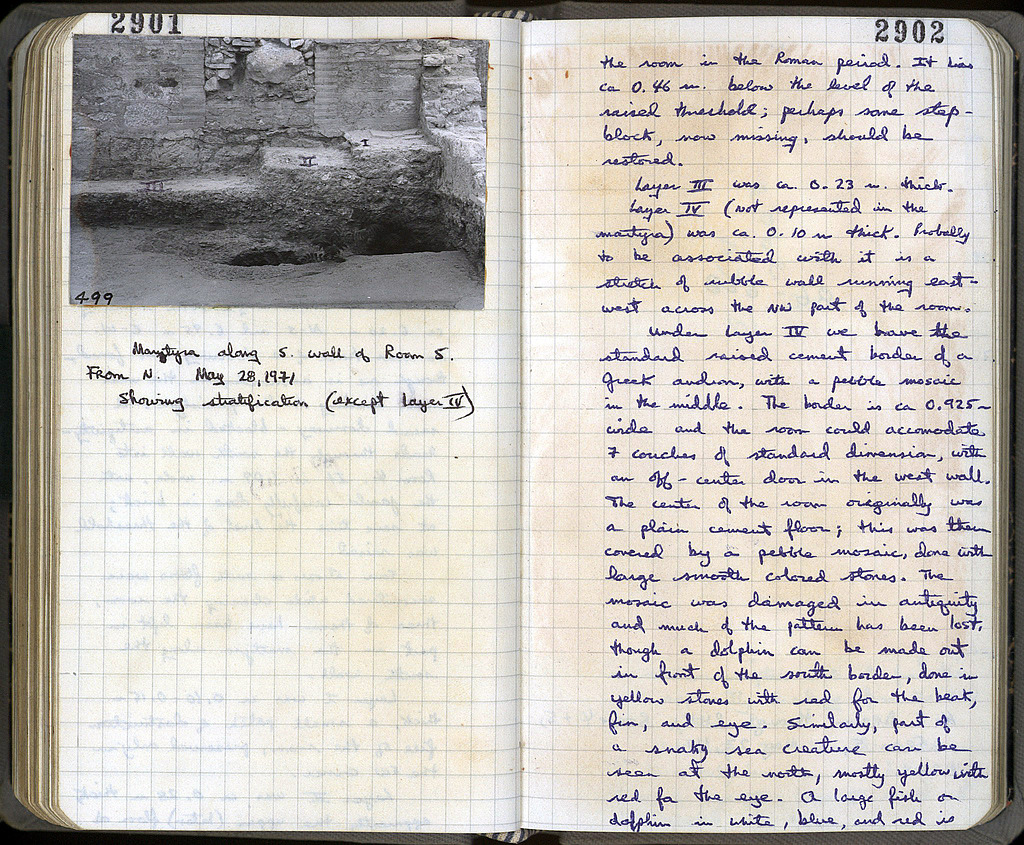 2901
I
II
III
499
Martyra along S. wall of Room 5.
From N. May 28, 1971
Showing stratification (except Layer IV)
2902
the room in the Roman period. It lies
ca 0.46 m. below the level of the
raised threshold; perhaps some step-
block, now missing, should be
restored.
Layer III was ca. 0.23 m. thick.
Layer IV (not represented in the
martyra) was ca. 0.10 m thick. Probably
to be associated with it is a
stretch of rubble wall running east-
west across the NW part of the room.
Under Layer IV we have the
standard raised cement border of a
Greek andron, with a pebble mosaic
in the middle. The border is ca 0.925-
wide and the room could accomodate
7 couches of standard dimension, with
an off-center door in the west wall.
The center of the room originally was
a plain cement floor; this was then
covered by a pebble mosaic, done with
large smooth colored stones. The
mosaic was damaged in antiquity
and much of the pattern has been lost,
though a dolphin can be made out
in front of the south border, done in
yellow stones with red for the beak,
fin, and eye. Similarly, part of
a snaky sea creature can be
seen at the north, mostly yellow with
red for the eye. A large fish or
dolphin in white, blue, and red is